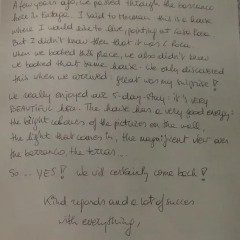 A few years ago we passed through the barranco
here in Eutopa. I said to Maureen this is a house
where I would like to live, pointing at Casa Loca.
But I didn't know then that it was C. Loca.
When we booked this place, we also didn't know
we booked that same house. We only discovered
this when we arrived. Great was my surprise!
We really enjoyed our 5-day-stay: it's very
BEAUTIFUL here. The house has a very good energy:
the bright colours of the pictures on the wall,
the light that comes in, the magnificent view over
the barranco, the terras.
So... YES! We will certainly come back!
Kind regards and a lot of succes
with everything,